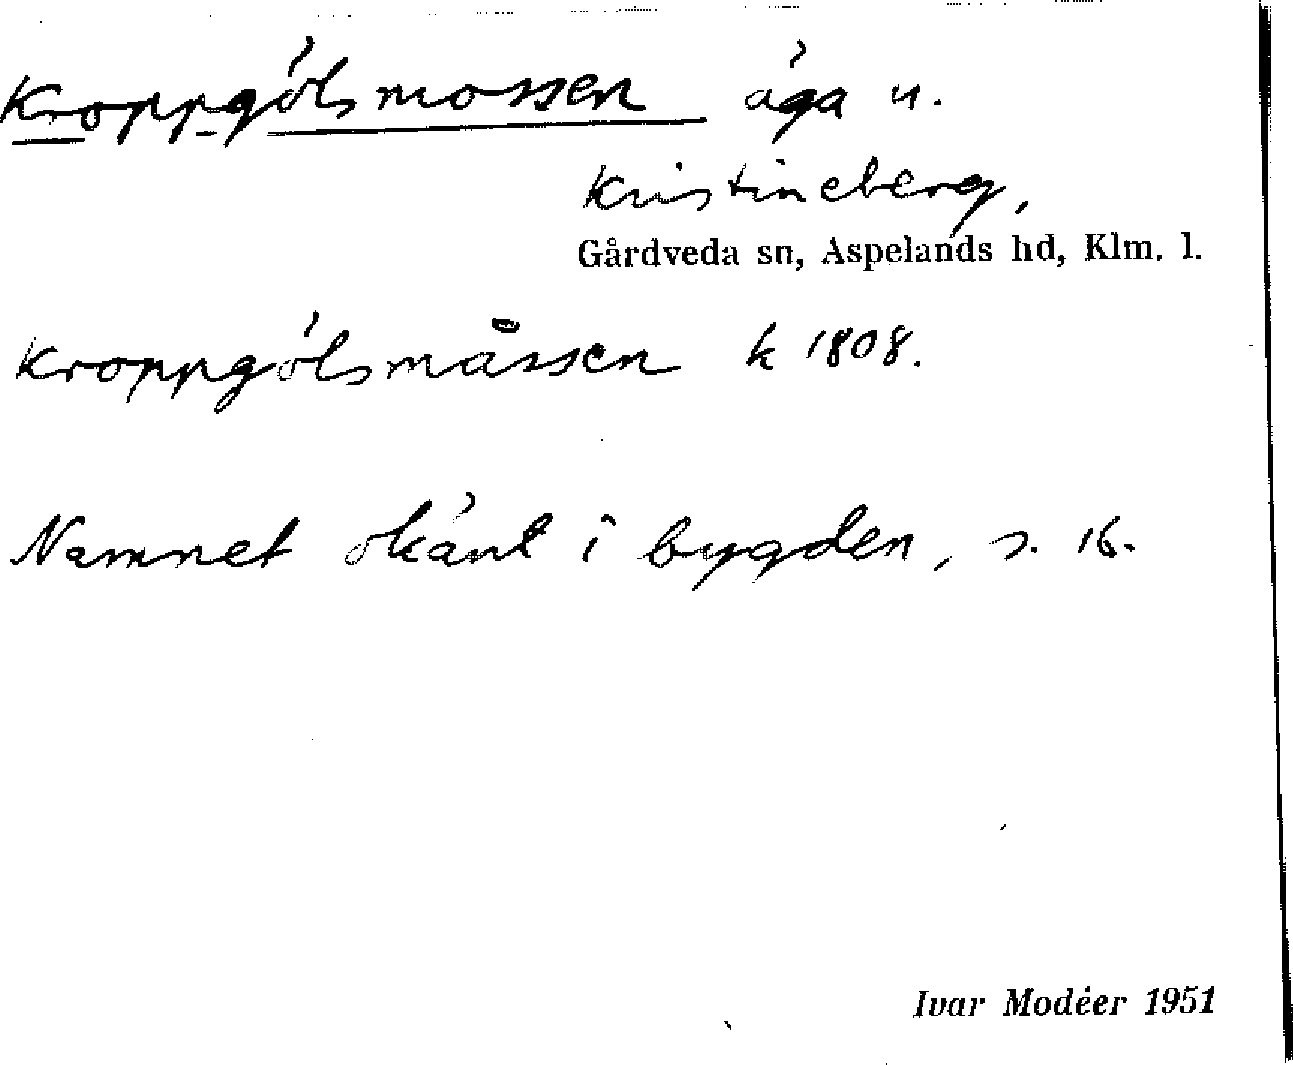 Kroppgölsmossen äga u.
Kristineberg,
Gårdveda sn, Aspelands hd, Klm. l.
Kroppgölsmåssen k 1808.
Namnet okänt i bygden, s. 16.
Ivar Modéer 1951